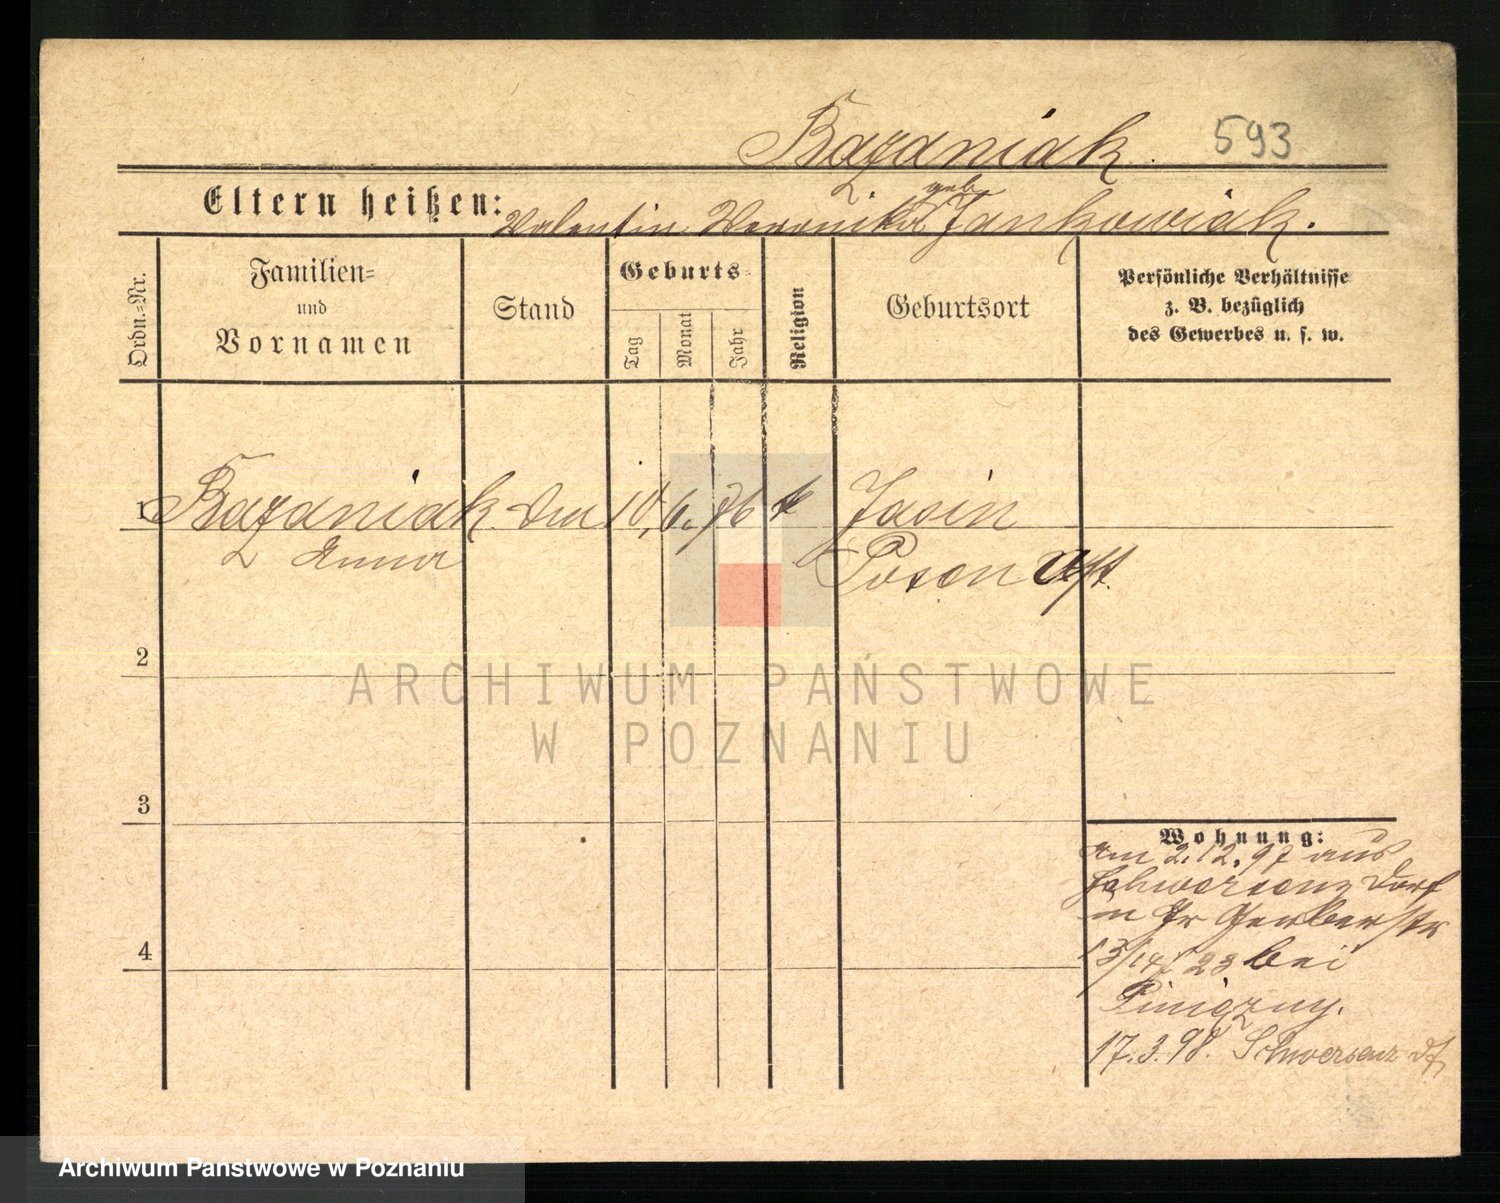 Bazaniak. 593
Eltern heißen: Valentin Veronika geb Jankowiak.
Ordn.-Nr.
Familien-
und
Vornamen
Stand
Geburts-
Tag
Monat
Jahr
Religion
Geburtsort
Persönliche Verhältnisse
z. B. bezüglich
des Gewerbes u. s. w.
1 Bazaniak 10. 6. 76 k Jasin
Anna Posen Ost
2
ARCHIWUM PAŃSTWOWE
W POZNANIU
3
Wohnung:
am 2.12.97 aus
Schwersenz Dorf
in Gr Gerberstr
23 bei
4
17.3.98. Schwersenz
Archiwum Państwowe w Poznaniu